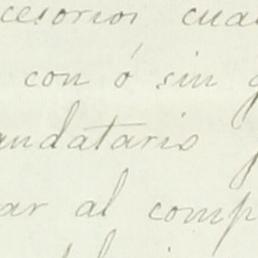 cesorios cua
con ó sin
andatario
ar al comp